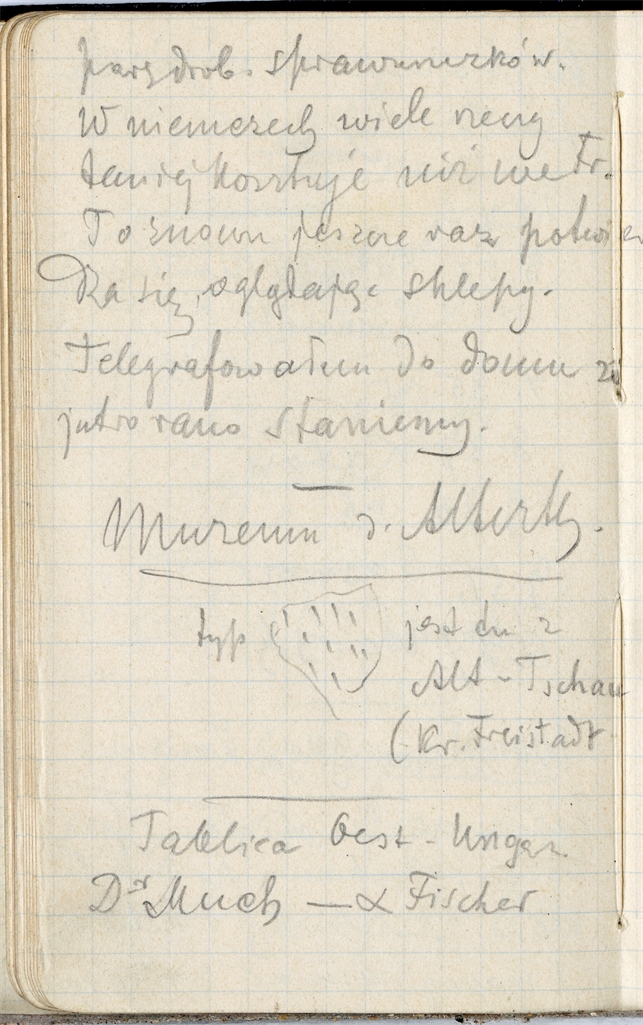 parę drob. sprawunków.
W niemczech wiele rzeczy
taniej kosztuje niż we Fr.
To znowu jeszcze raz potwier
dza się, oglądając sklepy.
Telegrafowałem do domu że
jutro rano staniemy.
Muzeum d. Alterth.
typ jest tu z
Alt-Tschau
(Kr. Freistadt
Tablica Oest-Ungar
Dr Much — & Fischer